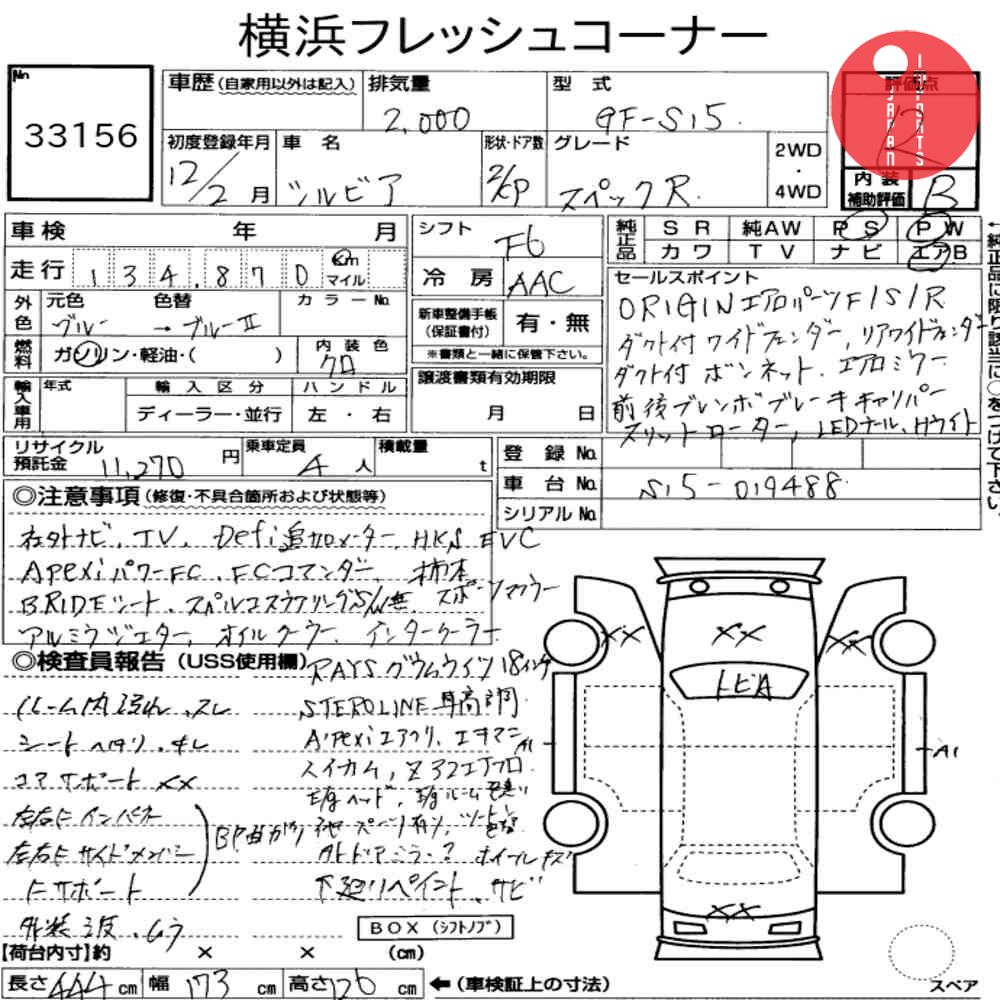 横浜フレッシュコーナー
No
33156
車歴(自家用以外は記入) 排気量 型式 評価点
2,000 GF-S15
JAPAN IMPORTS
初度登録年月 車名 形状・ドア数 グレード 2WD・4WD
12/2月 シルビア 2/CP スペックR 内装補助評価 B
車検 年 月 シフト F6 純正品 SR 純AW PS PW
カワ TV ナビ エアB
走行 134,870 Km マイル 冷房 AAC
セールスポイント
外色 元色 色替 カラーNo. 新車整備手帳(保証書付) 有・無
ブルー → ブルーII ※書類と一緒に保管下さい。
燃料 ガソリン・軽油・( ) 内装色 クロ
ORIGINエアロパーツF/S/R
ダクト付ワイドフェンダー, リアワイドフェンダー
ダクト付ボンネット、エアロミラー
前後ブレンボブレーキキャリパー
スリットローター, LEDテール、Hライト
←純正品に限り該当に○をつけて下さい。
輸入車用 年式 輸入区分 ハンドル 譲渡書類有効期限
ディーラー・並行 左・右 月 日
リサイクル預託金 11,270円 乗車定員 4人 積載量 t
登録No.
車台No. S15-019488
シリアルNo.
◎注意事項(修復・不具合箇所および状態等)
社外ナビ、TV、Defi追加メーター、HKS EVC
ApexiパワーFC、FCコマンダー、柿本
BRIDEシート、スペルコステアリングS/W無、スポーツマフラー
アルミラジエター、オイルクーラー、インタークーラー
◎検査員報告(USS使用欄)
RAYSグラムライツ18インチ
ルーム内汚れ、スレ
STEROLINE車高調
シートヘタリ、キレ
Apexiエアクリ、エキマニ
コアサポートXX
スイカム, Z32エアフロ
左右Fインパネ
左右Fサイドメンバー
Fサポート
BP曲がり
外ドアミラー? ホイールキズ
下廻りペイント、サビ
外装 波、ムラ
BOX(シフトノブ)
XX XX XX
トビA
A1 A1
XX
【荷台内寸】約 × × (cm)
長さ 444cm 幅 173cm 高さ 126cm ←(車検証上の寸法)
スペア